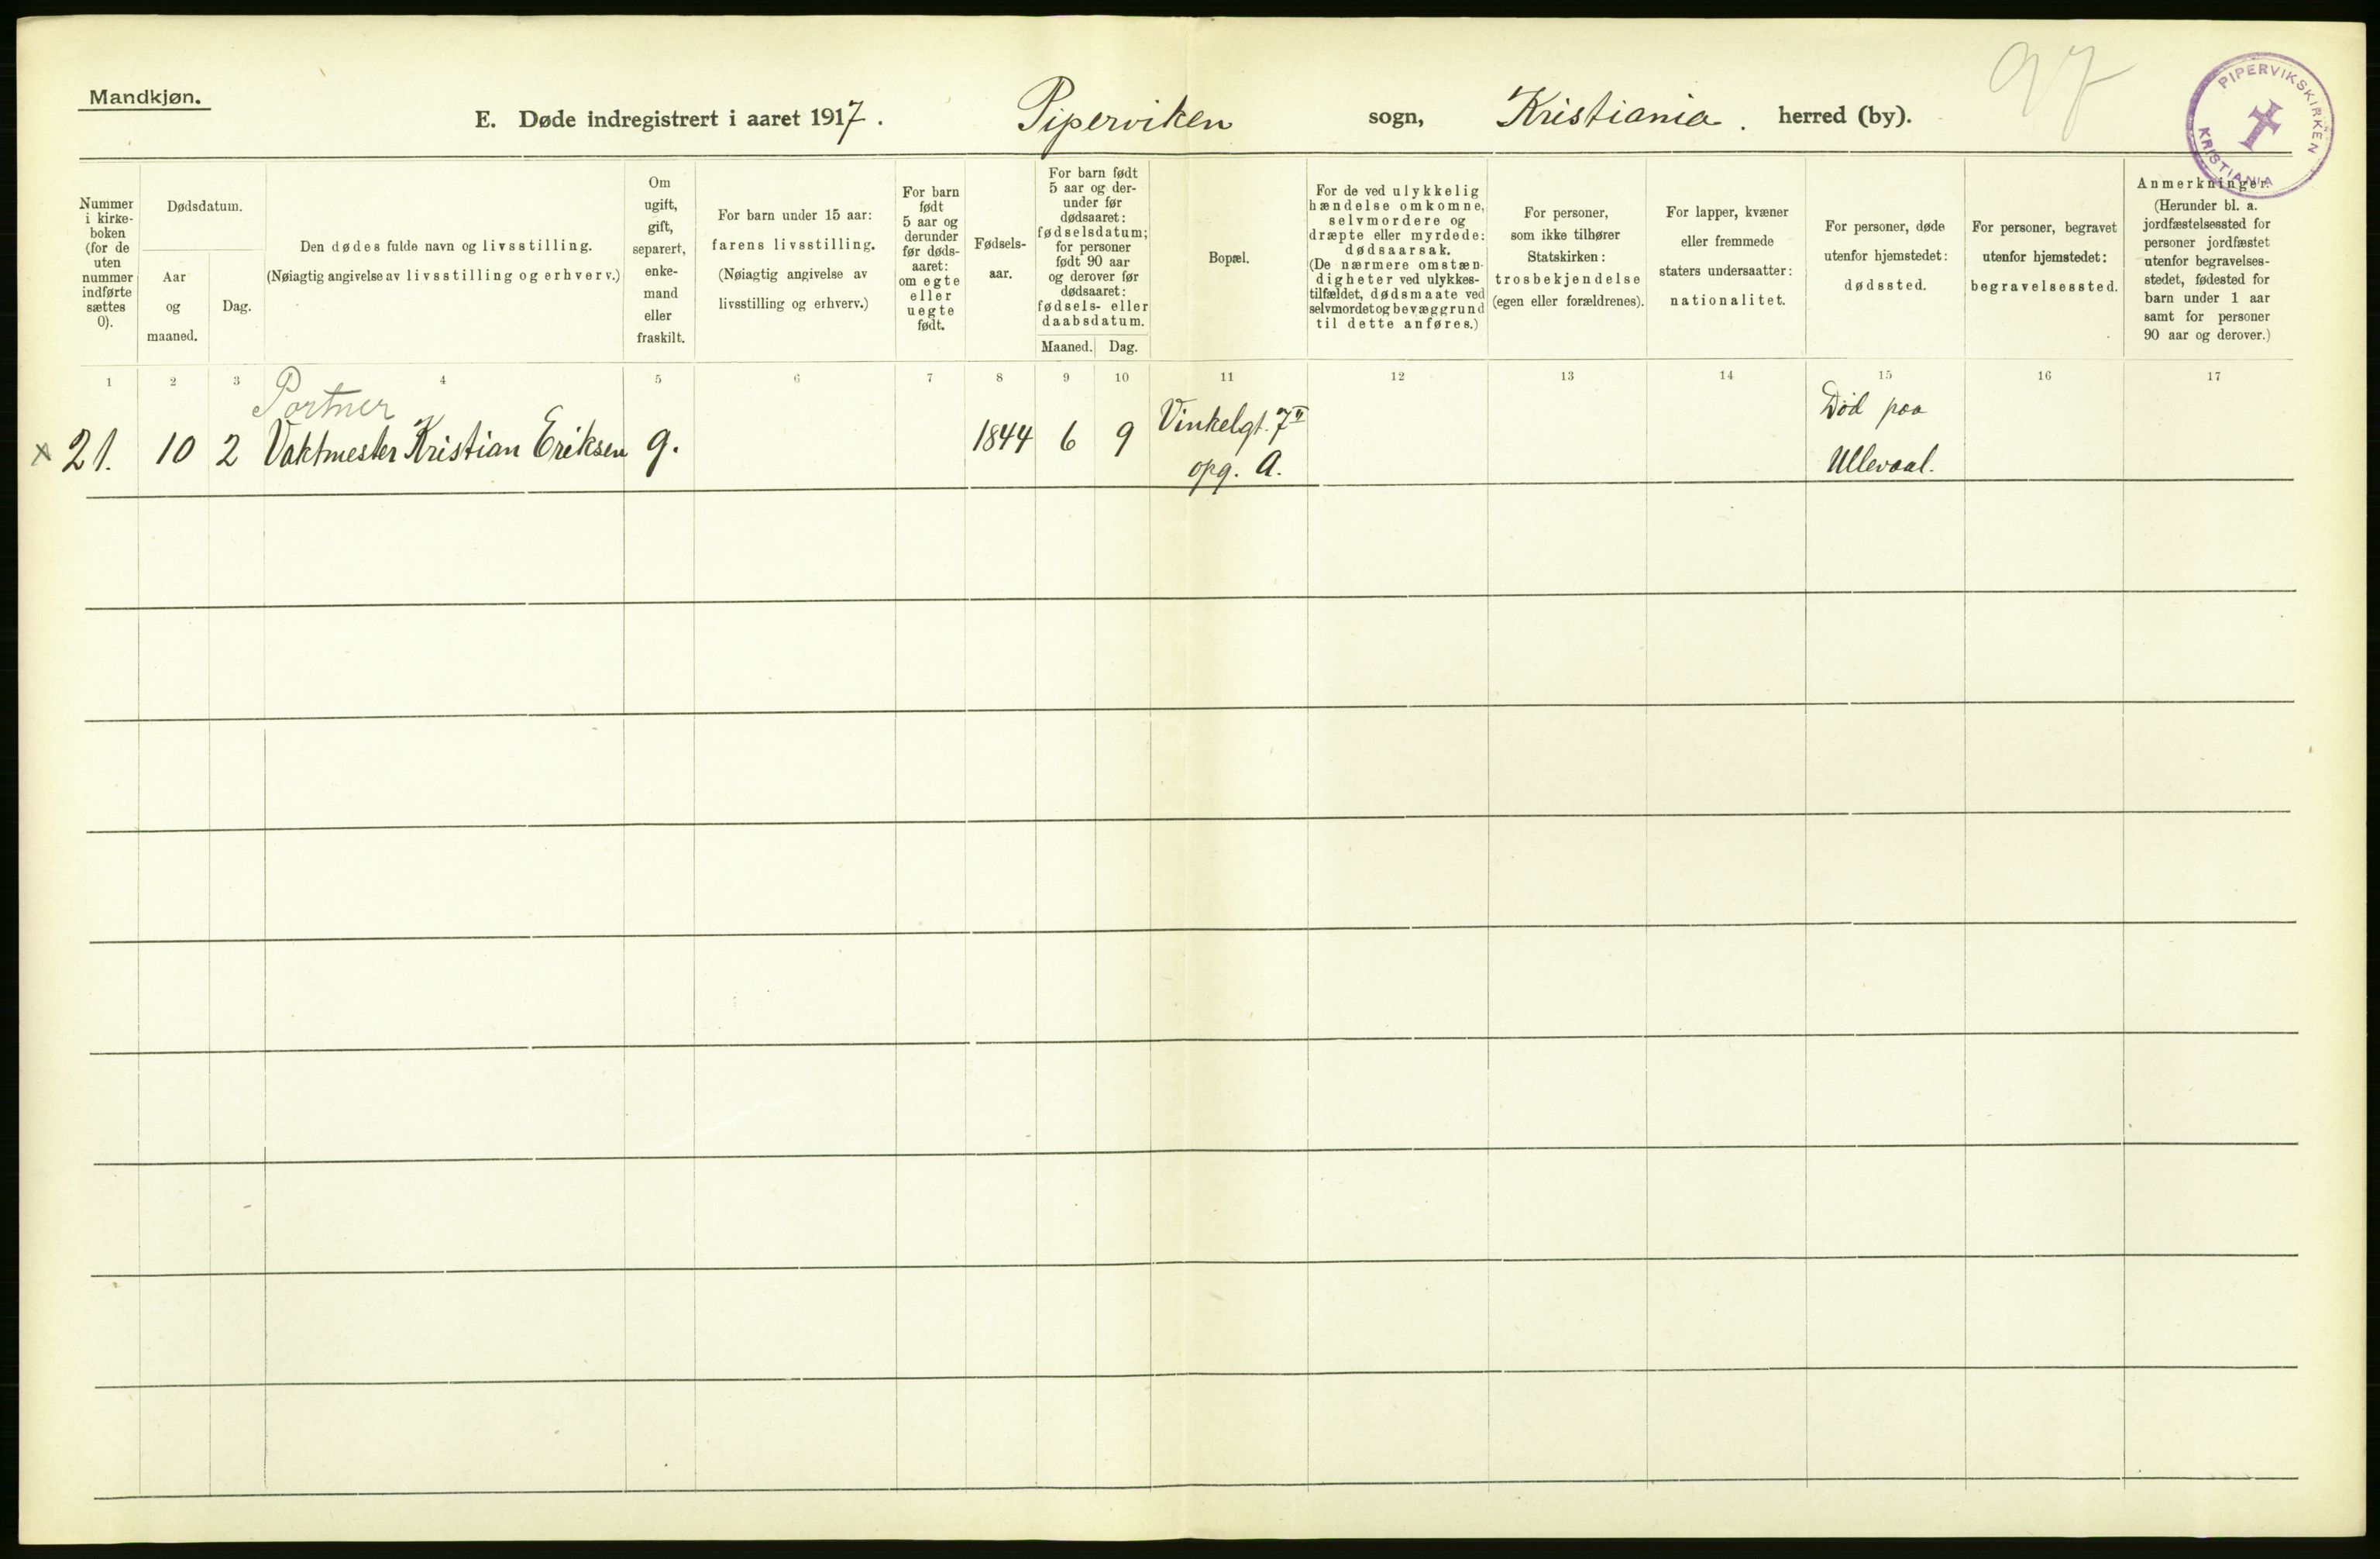 Mandkjøn.
97
PIPERVIKSKIRKEN
KRISTIANIA
E. Døde indregistrert i aaret 1917. Piperviken sogn, Kristiania. herred (by).
Nummer
i kirke-
boken
(for de
uten
nummer
indførte
sættes
0).
Dødsdatum.
Aar
og
maaned.
Dag.
Den dødes fulde navn og livsstilling.
(Nøiagtig angivelse av livsstilling og erhverv.)
Om
ugift,
gift,
separert,
enke-
mand
eller
fraskilt.
For barn under 15 aar:
farens livsstilling.
(Nøiagtig angivelse av
livsstilling og erhverv.)
For barn
født
5 aar og
derunder
før døds-
aaret:
om egte
eller
uegte
født.
Fødsels-
aar.
For barn født
5 aar og der-
under før
dødsaaret:
fødselsdatum;
for personer
født 90 aar
og derover før
dødsaaret:
fødsels- eller
daabsdatum.
Maaned. Dag.
Bopæl.
For de ved ulykkelig
hændelse omkomne,
selvmordere og
dræpte eller myrdede:
dødsaarsak.
(De nærmere omstæn-
digheter ved ulykkes-
tilfældet, dødsmaate ved
selvmordet og bevæggrund
til dette anføres.)
For personer,
som ikke tilhører
Statskirken:
trosbekjendelse
(egen eller forældrenes).
For lapper, kvæner
eller fremmede
staters undersaatter:
nationalitet.
For personer, døde
utenfor hjemstedet:
dødssted.
For personer, begravet
utenfor hjemstedet:
begravelsessted.
Anmerkninger.
(Herunder bl. a.
jordfæstelsessted for
personer jordfæstet
utenfor begravelses-
stedet, fødested for
barn under 1 aar
samt for personer
90 aar og derover.)
1 2 3 4 5 6 7 8 9 10 11 12 13 14 15 16 17
Portner
x 21. 10 2 Vaktmester Kristian Eriksen g. 1844 6 9 Vinkelgt. 7 II
opg. A.
Død paa
Ullevaal.